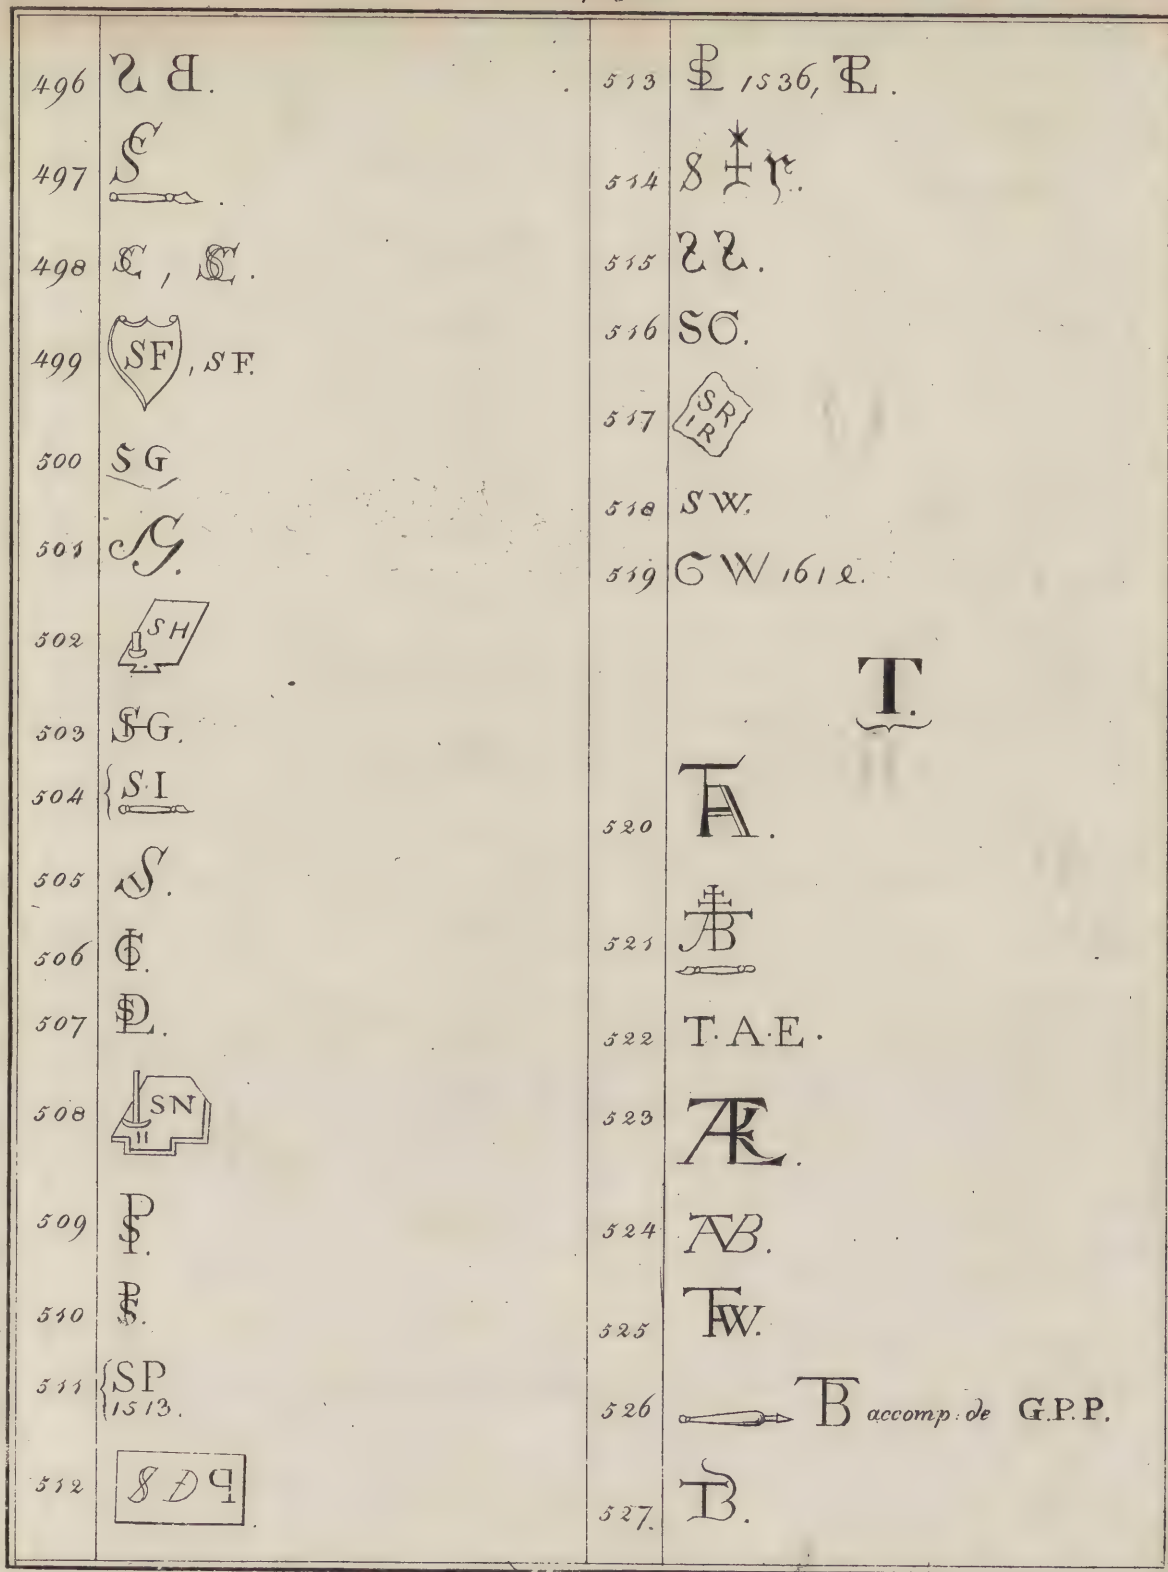 496 S B.
497 SC.
498 SC, SC.
499 SF, SF.
500 SG
501 SG.
502 SH
503 SHG.
504 S·I
505 S.
506
507 SDL.
508 SN
509 SP.
510 SP.
511 SP
1513.
512 S D P.
513 SPL 1536, .
514 S r.
515 S S.
516 SO.
517 SR
IR
518 SW.
519 G W 161e.
T.
520 TA.
521 TAB
522 T.A.E.
523
524 TAB.
525 TAW.
526 TB accomp: de G.P.P.
527. TB.